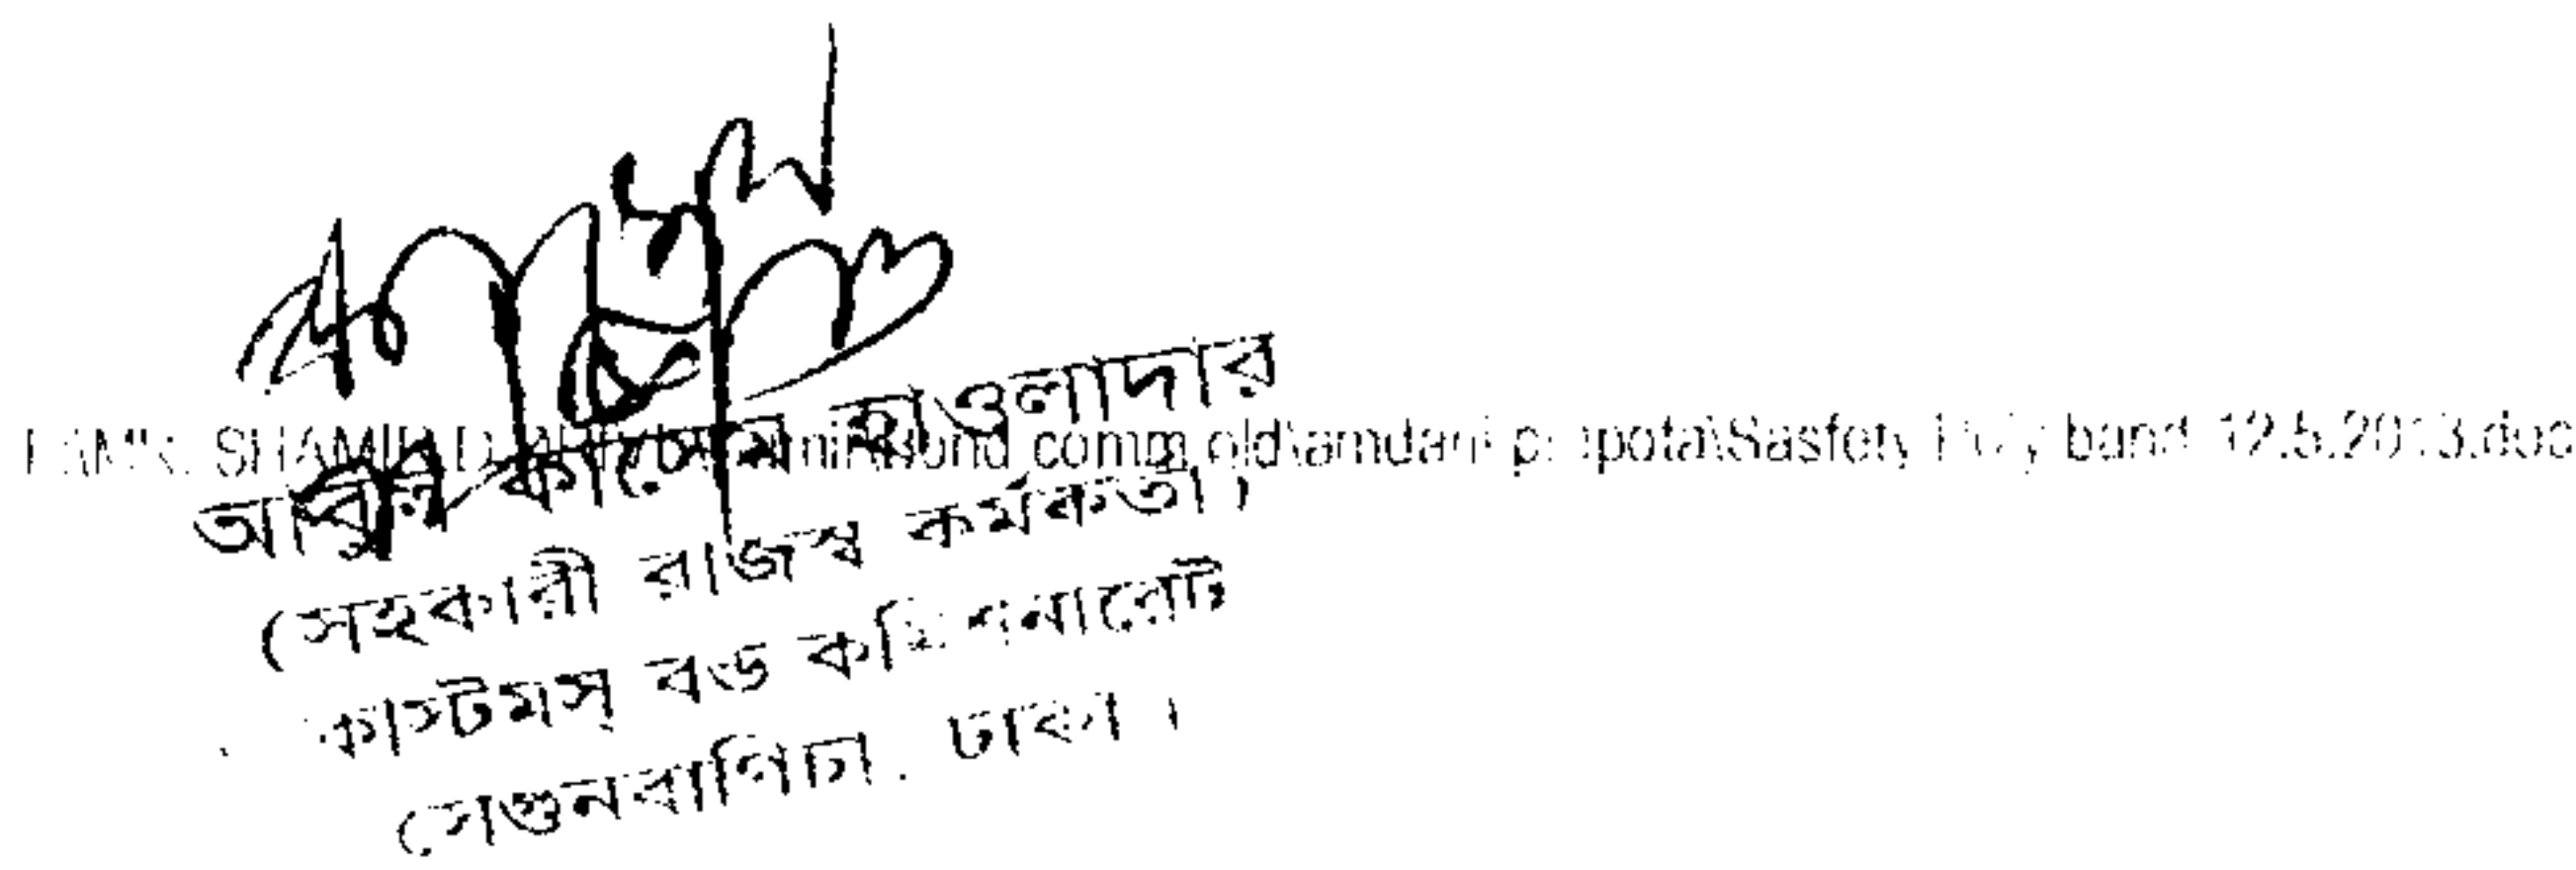 comm old\amdani prapota\Sasfety Poly band 12.5.2013.doc
আবুল কাসেম হাওলাদার
(সহকারী রাজস্ব কর্মকর্তা)
কাস্টমস্ বন্ড কমিশনারেট
সেগুনবাগিচা, ঢাকা।